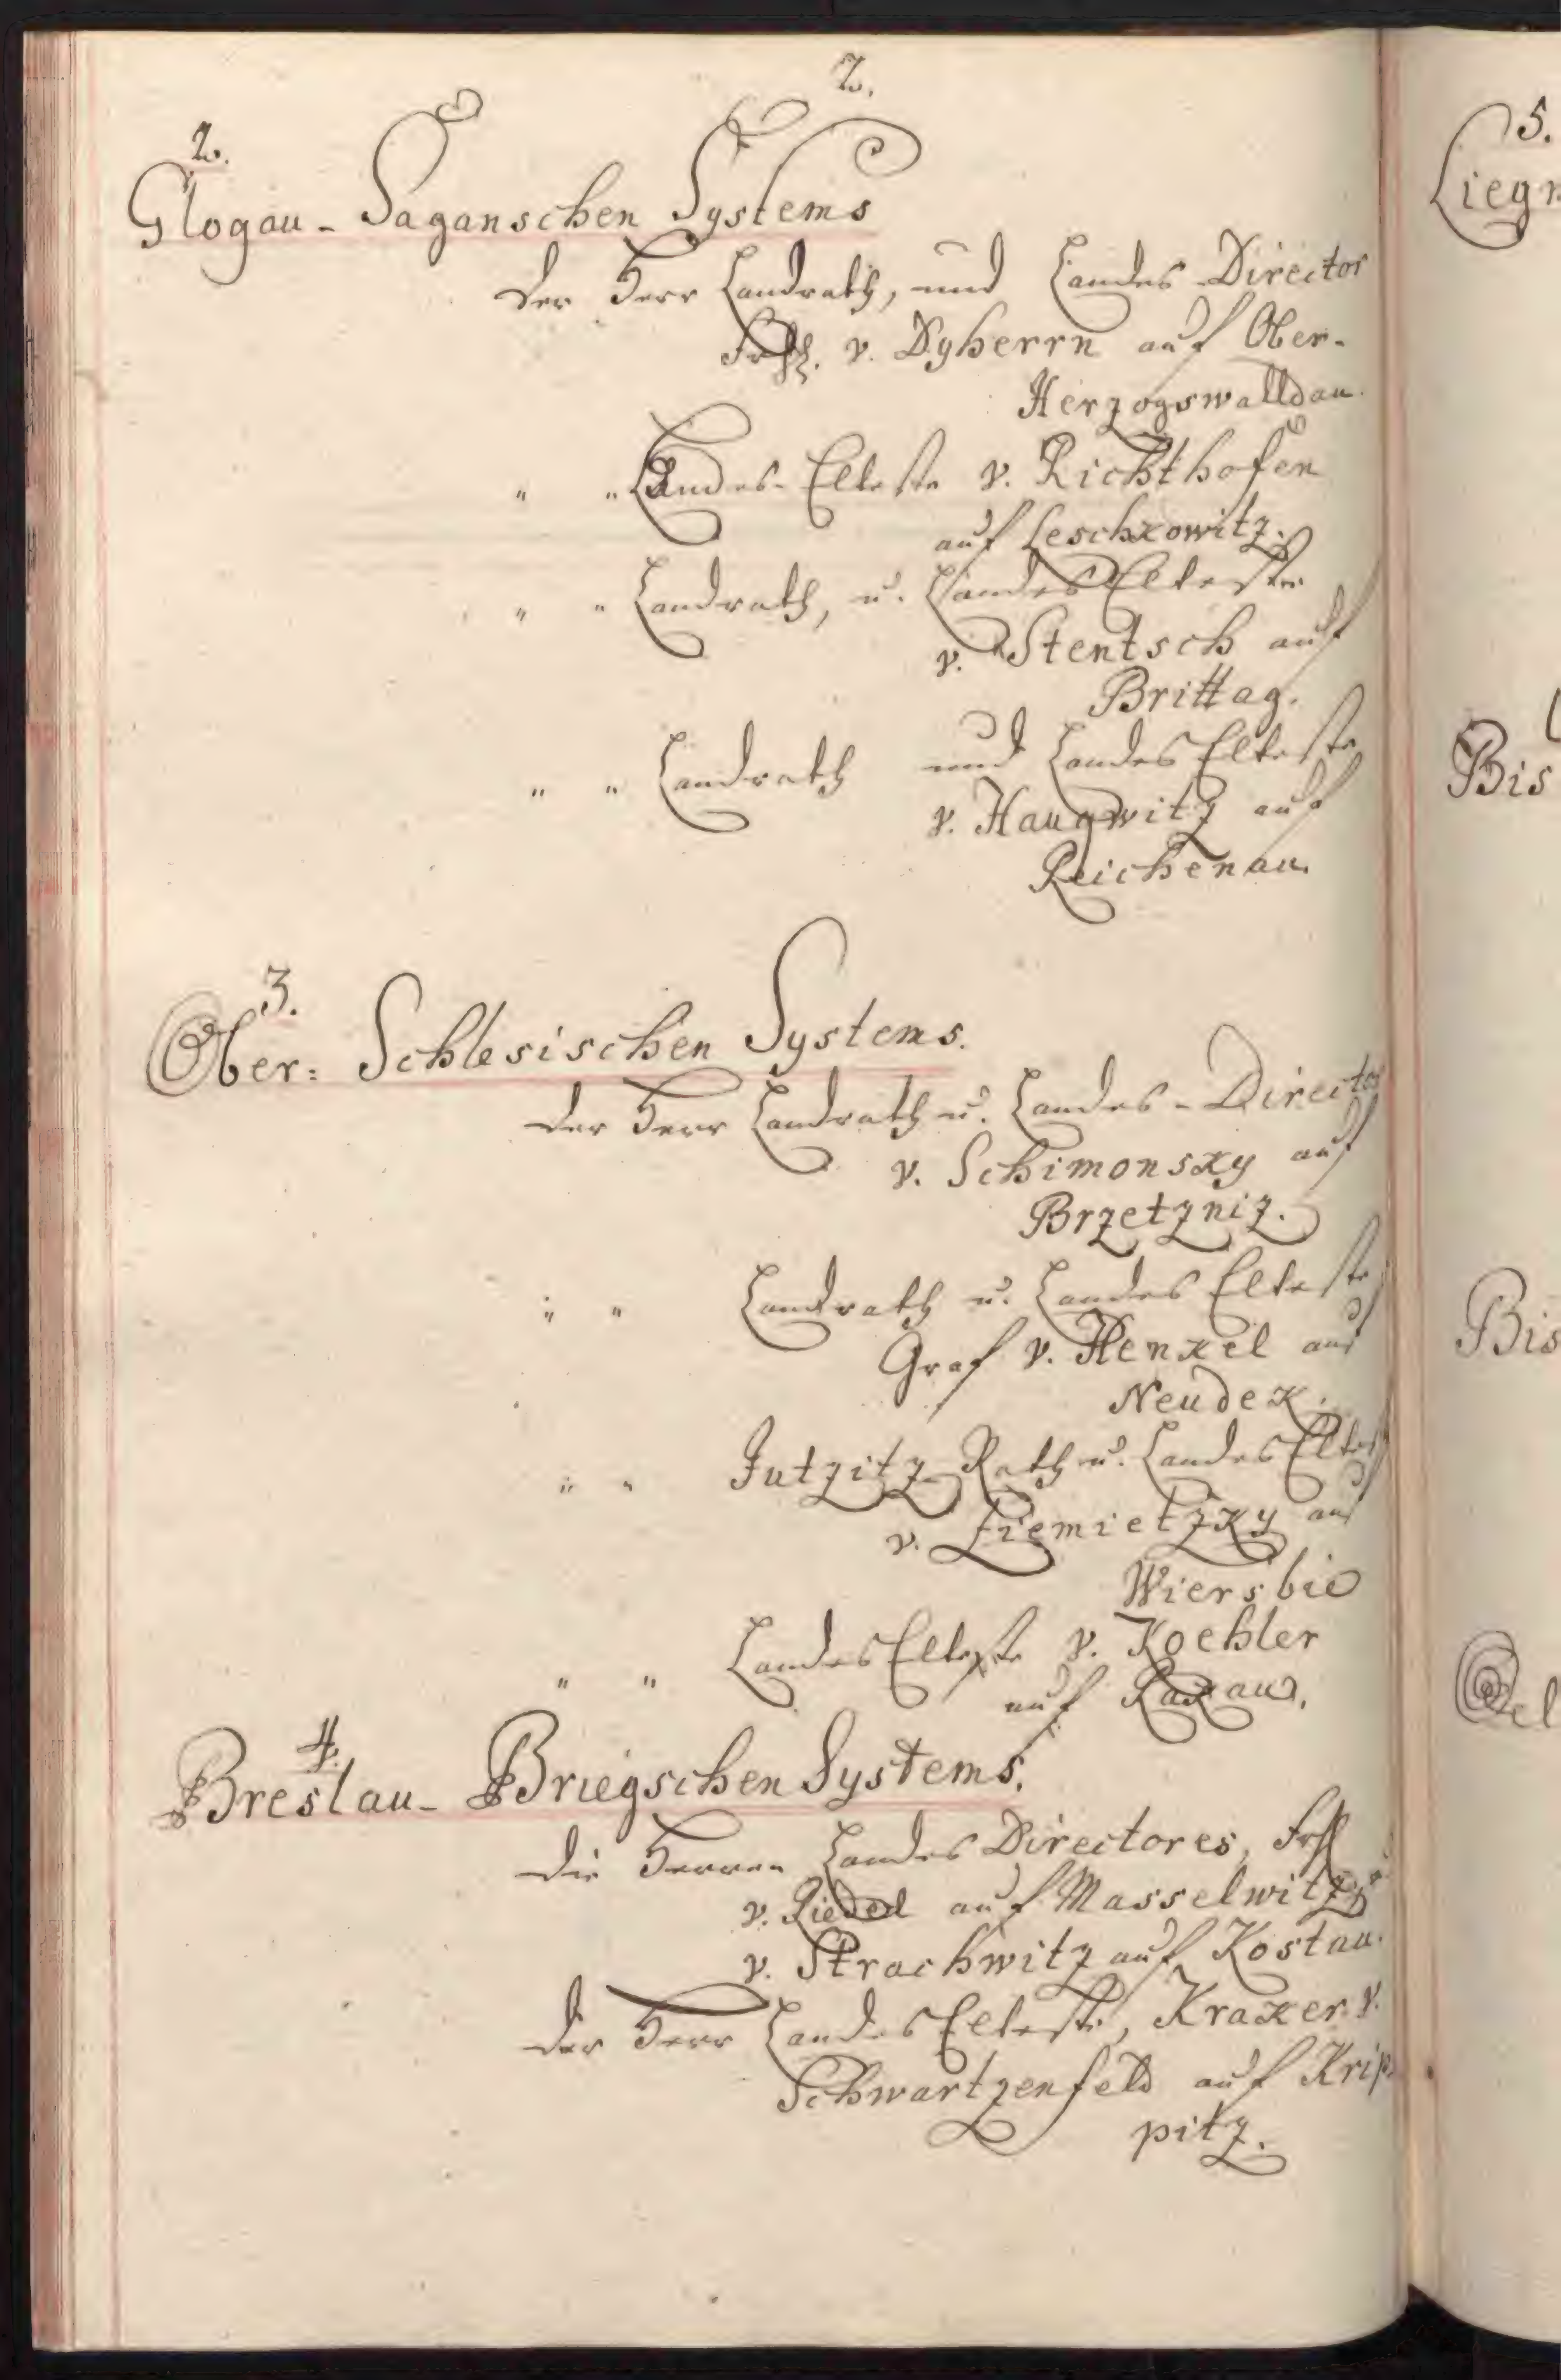 2.
2.
Glogau-Saganschen Systems
Der Herr Landrath, und Landes-Director
Frh. v. Dyherrn auf Ober-
Herzogswalldau.
" " Landes-Elteste v. Richthofen
auf Leschkowitz.
" " Landrath, u. Landes Elteste
v. Stentsch auf
Brittag.
" " Landrath und Landes Elteste
v. Haugwitz auf
Reichenau.
3.
Ober= Schlesischen Systems.
Der Herr Landrath u. Landes-Director
v. Schimonsky auf
Brzetzniz.
" " Landrath u. Landes Elteste
Graf v. Henkel auf
Neudek.
" " Jutzitz Rath u. Landes Eltest
v. Ziemietzky auf
Wiersbie
" " Landes Elteste v. Koehler
auf Kakau.
4.
Breslau-Briegschen Systems.
Die Herren Landes Directores, Frh
v. Riedel auf Masselwitz, u.
v. Strachwitz auf Kostau.
Der Herr Landes Elteste, Kraker v.
Schwartzenfeld auf Krip-
pitz.
5.
Liegn
Bis
Bis
Oel